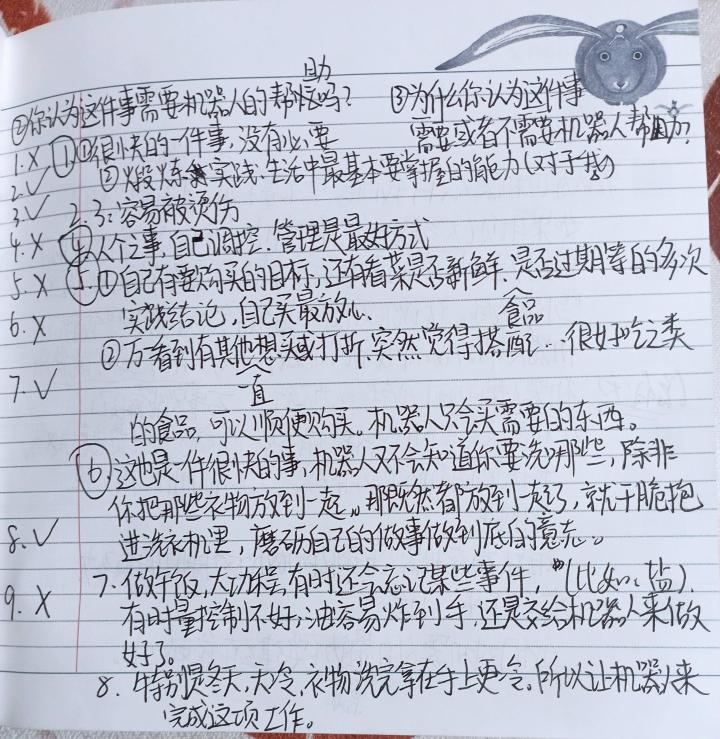 助
②你认为这件事需要机器人的帮忙吗? ③为什么你认为这件事
需要或者不需要机器人帮助?
1.X ①①很快的一件事,没有必要
2.✓ ②煅炼实践.生活中最基本要掌握的能力(对于我)
3.✓ 2.3:容易被烫伤
4.X ④人个之事,自己调控.管理是最好方式
5.X ⑤.①自己有要购买的目标,还有看菜是否新鲜.是否过期等的多次
食品
6.X 实践结论,自己买最放心.
②万一看到有其他想买或打折,突然觉得搭配...很好吃之类
7.✓ 直
的食品,可以顺便购买。机器人只会买需要的东西。
⑥.这也是一件很快的事,机器人又不会知道你要洗哪些,除非
你把那些衣物放到一起。那既然都放到一起了,就干脆抱
8.✓ 进洗衣机里,磨砺自己的做事做到底的意志。
9.X 7.做午饭,大功程,有时还会忘记某些事件,(比如:盐).
有时量控制不好,油容易炸到手,还是交给机器人来做
好了。
8.特别是冬天,天冷,衣物洗完拿在手上更冷。所以让机器人来
完成这项工作。